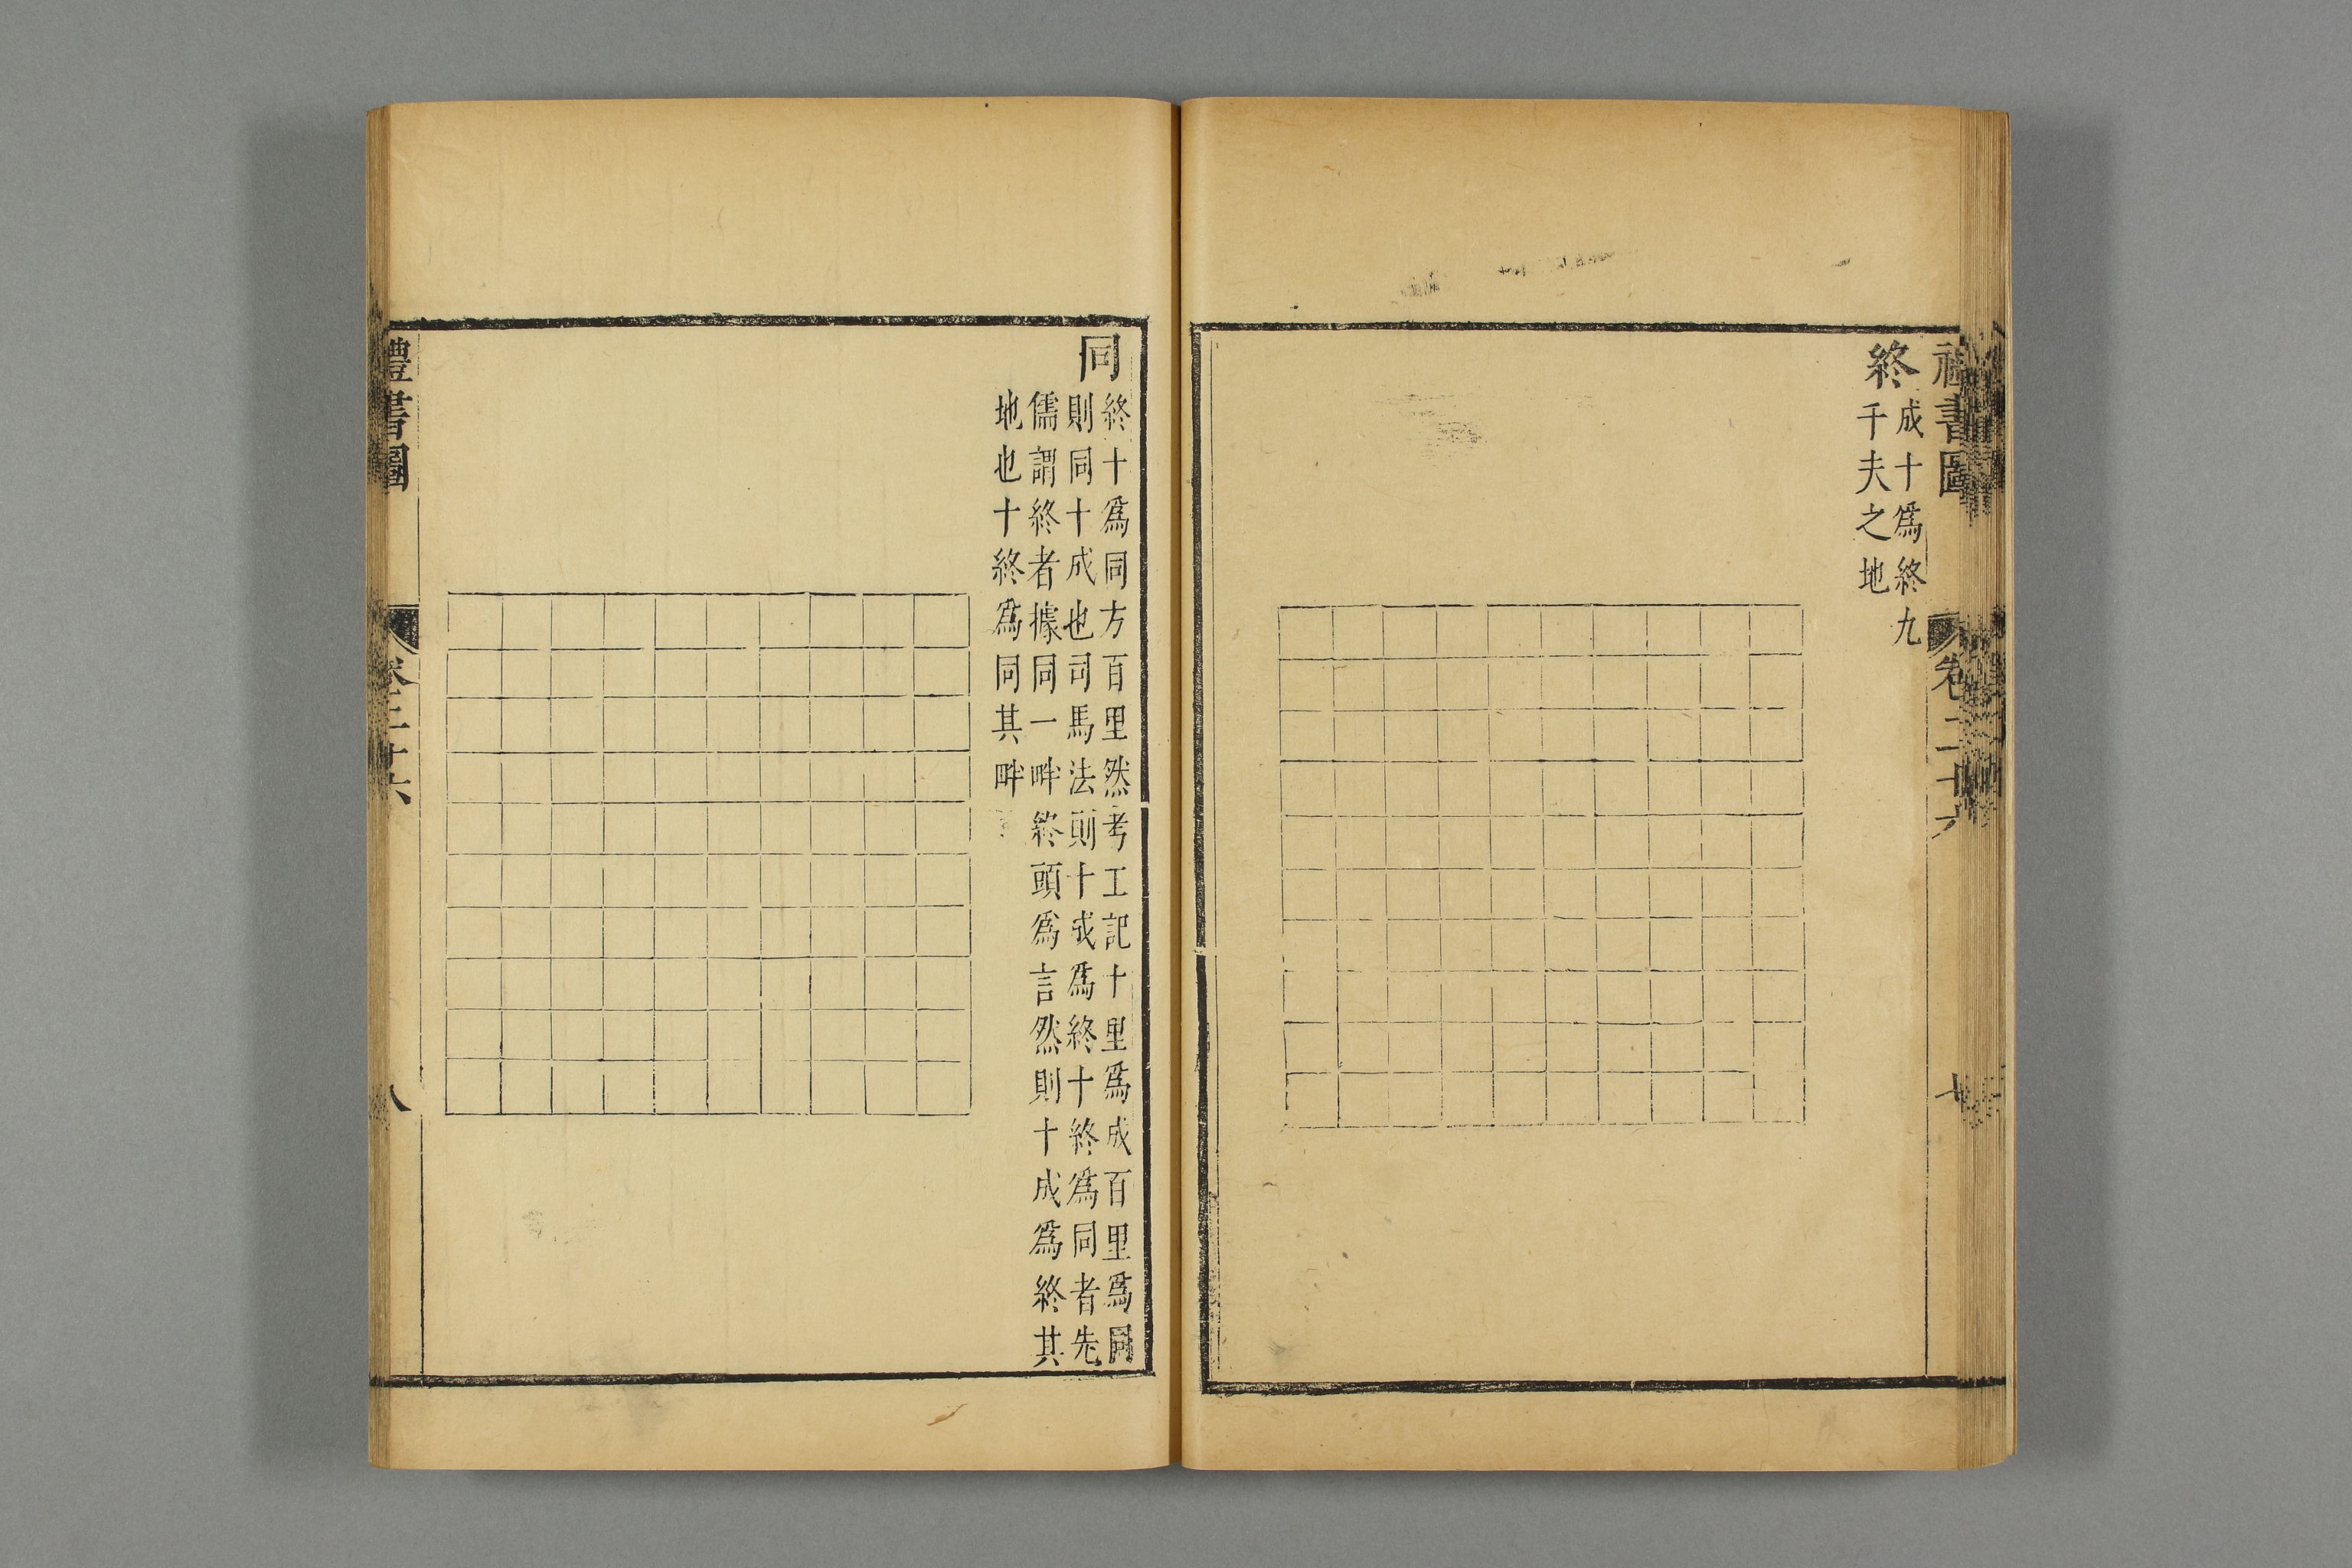 禮書圖 卷二十六 七
終
成十爲終九
千夫之地
同
終十爲同方百里然考工記十里爲成百里爲同
則同十成也司馬法則十成爲終十終爲同者先
儒謂終者據同一畔終頭爲言然則十成爲終其
地也十終爲同其畔
禮書圖 卷二十六 八